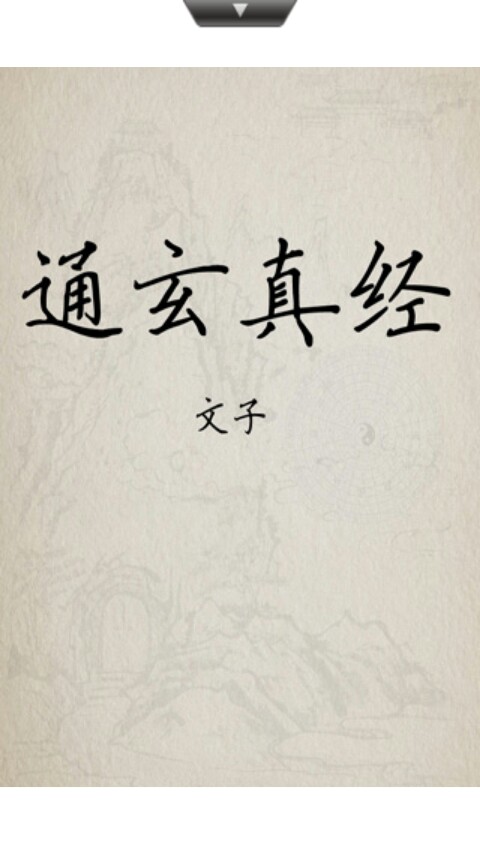 通玄真经
文子